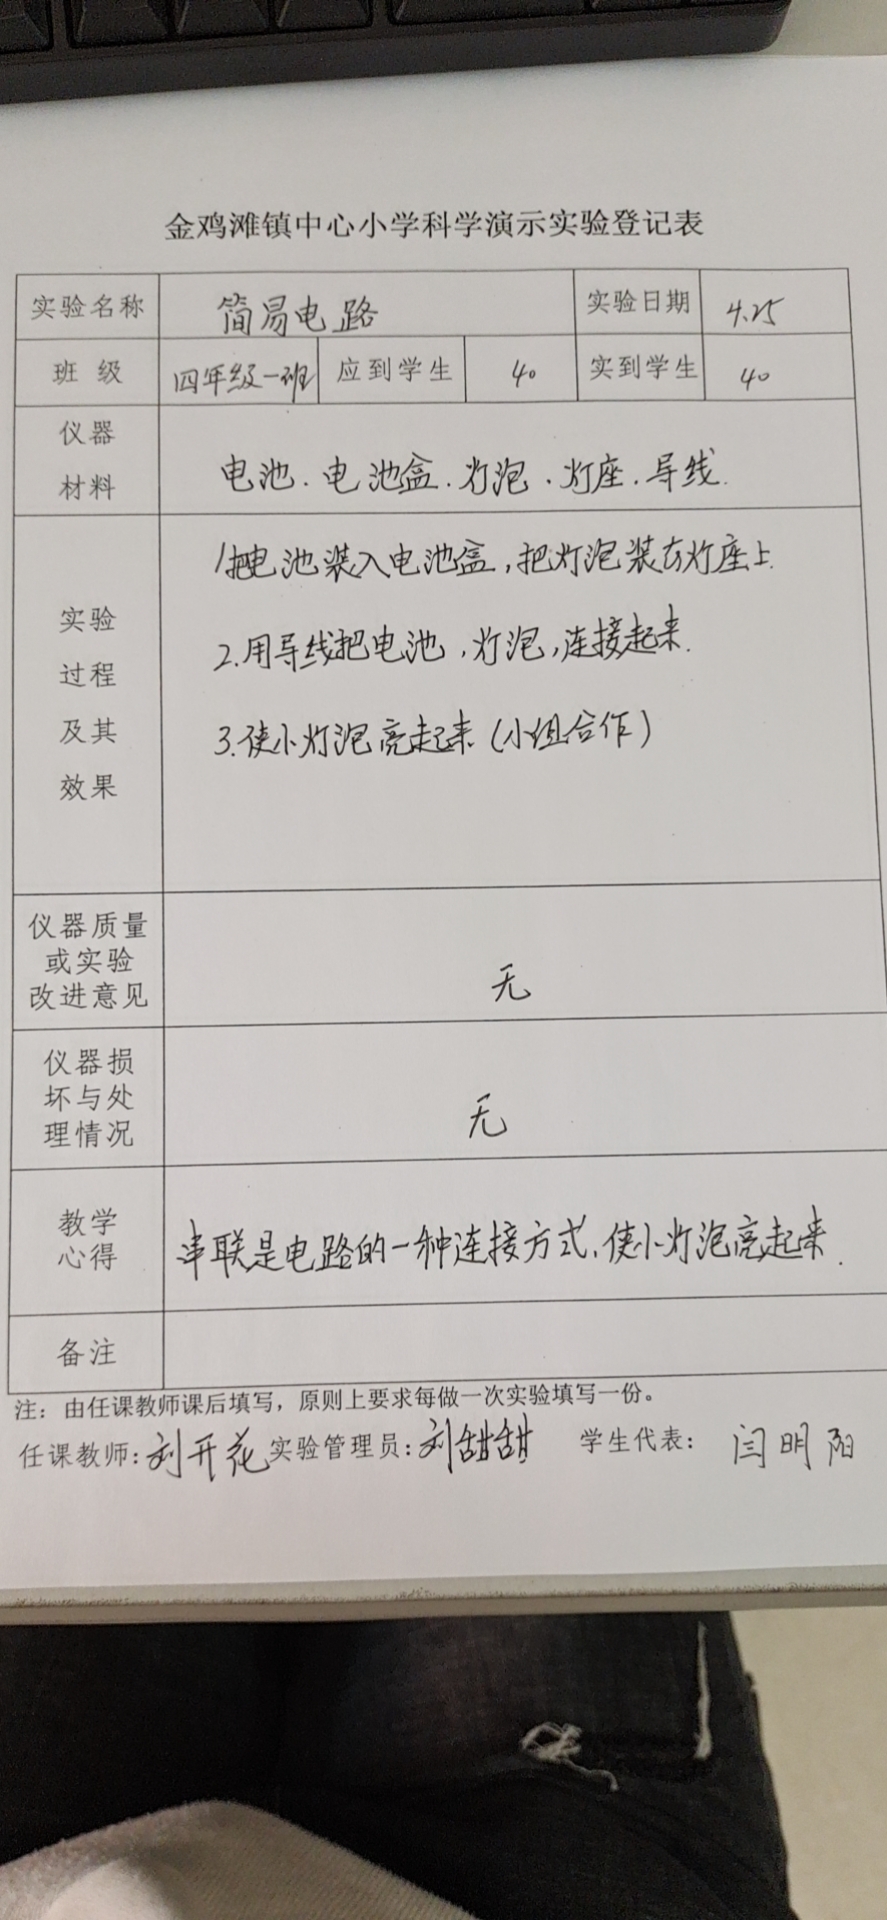 金鸡滩镇中心小学科学演示实验登记表
实验名称 简易电路 实验日期 4.25
班 级 四年级一班 应到学生 40 实到学生 40
仪器
材料
电池.电池盒.灯泡.灯座.导线.
实验
过程
及其
效果
1把电池装入电池盒,把灯泡装在灯座上.
2.用导线把电池,灯泡,连接起来.
3.使小灯泡亮起来(小组合作)
仪器质量
或实验
改进意见
无
仪器损
坏与处
理情况
无
教学
心得
串联是电路的一种连接方式,使小灯泡亮起来.
备注
注：由任课教师课后填写，原则上要求每做一次实验填写一份。
任课教师:刘开花 实验管理员:刘甜甜 学生代表: 闫明阳